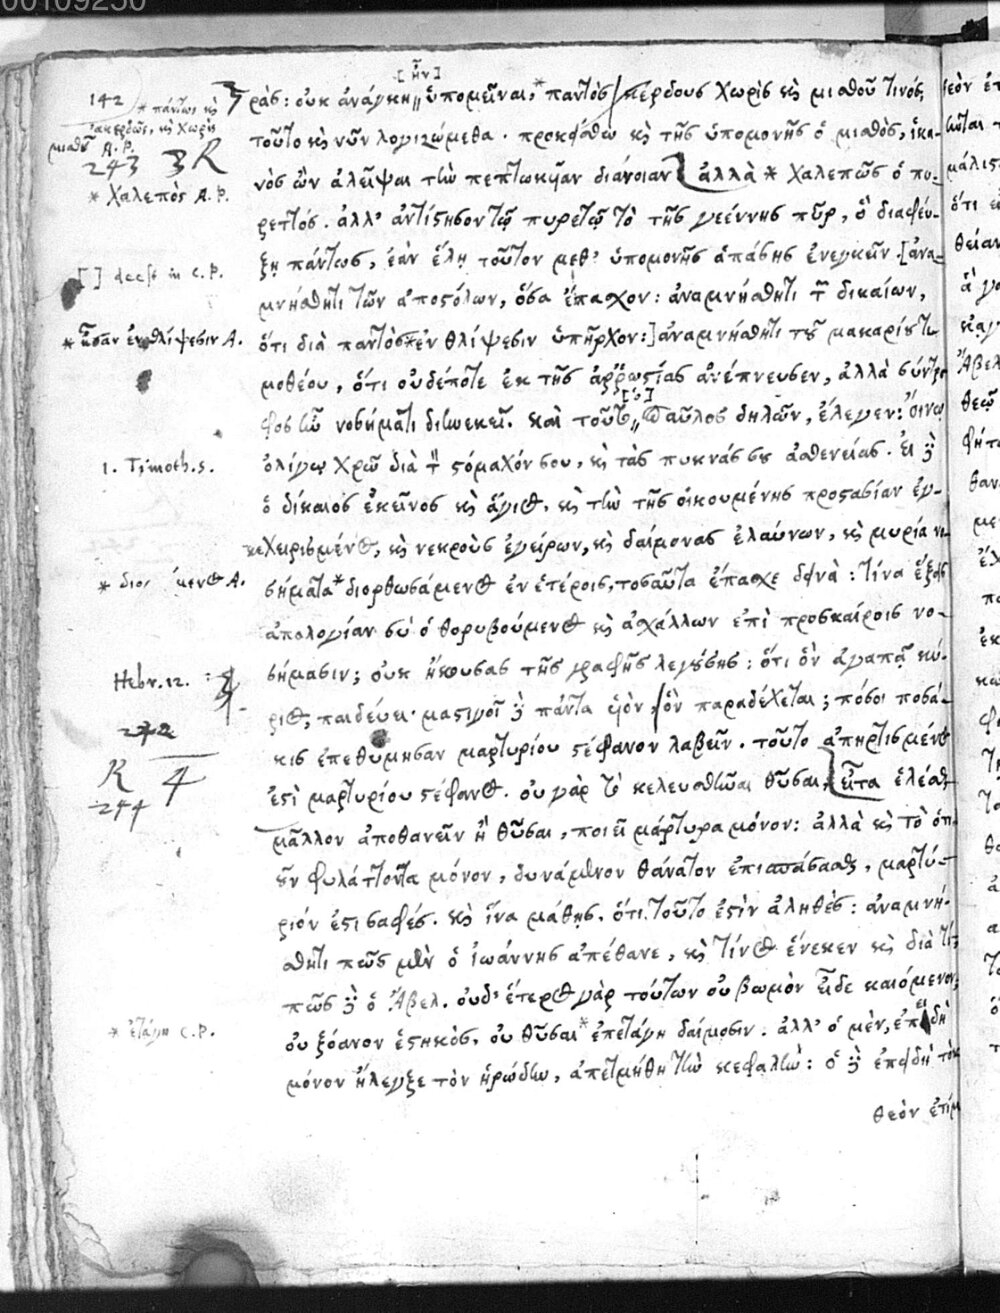 00109250
[ἦν]
142 * πάντως κ̀
ἀκερδῶς, κ̀ χωρὶς
μισθοῦ A.P.
243 3 R
* χαλεπὸς A.P.
[ ] deest in C.P.
* ἦσαν ἐν θλίψεσιν A.
1. Timoth. 5.
Hebr. 12.
242
R 4
244
* ἐτάγη C.P.
ρὰς: οὐκ ἀνάγκη ὑπομεῖναι, * παντὸς κέρδους χωρὶς κ̀ μισθοῦ τινός;
τοῦτο κ̀ νῦν λογιζώμεθα. προκείσθω κ̀ τῆς ὑπομονῆς ὁ μισθὸς, ἱκα-
νὸς ὢν ἀλεῖψαι τὴν πεπτωκυῖαν διάνοιαν ἀλλὰ * χαλεπῶς ὁ πυ-
ρετός. ἀλλ' ἀντίστησον τῷ πυρετῷ τὸ τῆς γεέννης πῦρ, ὃ διαφεύ-
ξῃ πάντως, ἐὰν ἕλῃ τοῦτον μεθ' ὑπομονῆς ἁπάσης ἐνεγκεῖν. [ἀνα-
μνήσθητι τῶν ἀποστόλων, ὅσα ἔπασχον: ἀναμνήσθητι τ̃ δικαίων,
ὅτι διὰ παντὸς * ἐν θλίψεσιν ὑπῆρχον:] ἀναμνήσθητι τοῦ μακαρίου Τι-
μοθέου, ὅτι οὐδέποτε ἐκ τῆς ἀῤῥωστίας ἀνέπνευσεν, ἀλλὰ σύντρο
φος ὢν νοσήματι διηνεκεῖ. καὶ τοῦτο [ὁ] Παῦλος δηλῶν, ἔλεγεν: Οἴνῳ
ὀλίγῳ χρῶ διὰ τ̀ στόμαχόν σου, κ̀ τὰς πυκνάς σου ἀσθενείας. εἰ δὲ
ὁ δίκαιος ἐκεῖνος κ̀ ἅγιος, κ̀ τὴν τῆς οἰκουμένης προστασίαν ἐγ-
κεχειρισμένος, κ̀ νεκροὺς ἐγείρων, κ̀ δαίμονας ἐλαύνων, κ̀ μυρία νο
σήματα * διορθωσάμενος ἐν ἑτέροις, τοσαῦτα ἔπασχε δεινὰ: τίνα ἕξεις
ἀπολογίαν σὺ ὁ θορυβούμενος κ̀ ἀσχάλλων ἐπὶ προσκαίροις νο-
σήμασιν; οὐκ ἤκουσας τῆς γραφῆς λεγούσης: ὅτι ὃν ἀγαπᾷ κύ-
ριος, παιδεύει· μαστιγοῖ δὲ πάντα υἱὸν, ὃν παραδέχεται; πόσοι ποσά-
κις ἐπεθύμησαν μαρτυρίου στέφανον λαβεῖν. τοῦτο ἀπηρτισμένος
ἐστὶ μαρτυρίου στέφανος. οὐ γὰρ τὸ κελευσθῆναι θῦσαι, εἶτα ἑλέσθαι
μᾶλλον ἀποθανεῖν ἢ θῦσαι, ποιεῖ μάρτυρα μόνον: ἀλλὰ κ̀ τὸ ὁτι
οῦν φυλάττοντα μόνον, δυνάμενον θάνατον ἐπισπάσασθαι, μαρτύ-
ριόν ἐστι σαφές. κ̀ ἵνα μάθῃς, ὅτι τοῦτο ἐστὶν ἀληθὲς: ἀναμνή-
σθητι πῶς μὲν ὁ Ἰωάννης ἀπέθανε, κ̀ τίνος ἕνεκεν κ̀ διὰ τί:
πῶς δὲ ὁ Ἄβελ. οὐδ' ἕτερος γὰρ τούτων οὐ βωμὸν εἶδε καιόμενον,
οὐ ξόανον ἑστηκὸς, οὐ θῦσαι * ἐπετάγη δαίμοσιν. ἀλλ' ὁ μὲν, ἐπειδὴ
μόνον ἤλεγξε τὸν Ἡρώδην, ἀπετμήθη τὴν κεφαλήν: ὁ δὲ ἐπειδὴ τὸν
θεὸν ἐτίμ